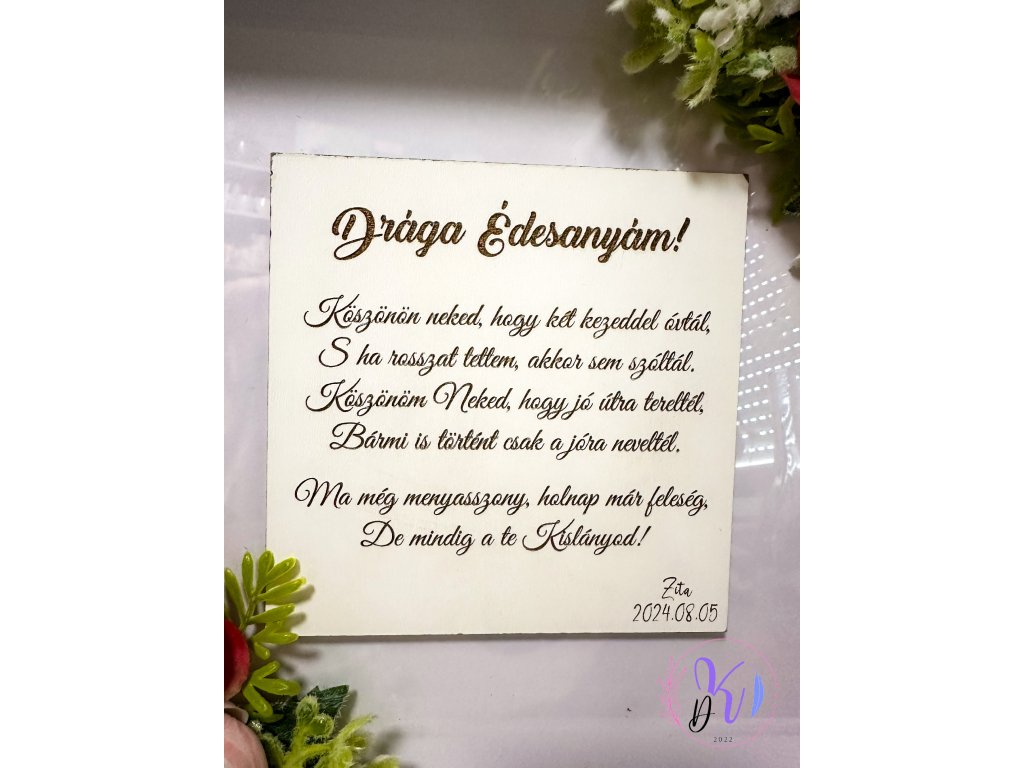 Drága Édesanyám!
Köszönön neked, hogy két kezeddel óvtál,
S ha rosszat tettem, akkor sem szóltál.
Köszönöm Neked, hogy jó útra tereltél,
Bármi is történt csak a jóra neveltél.
Ma még menyasszony, holnap már feleség,
De mindig a te Kislányod!
Zita
2024.08.05
DK
2022